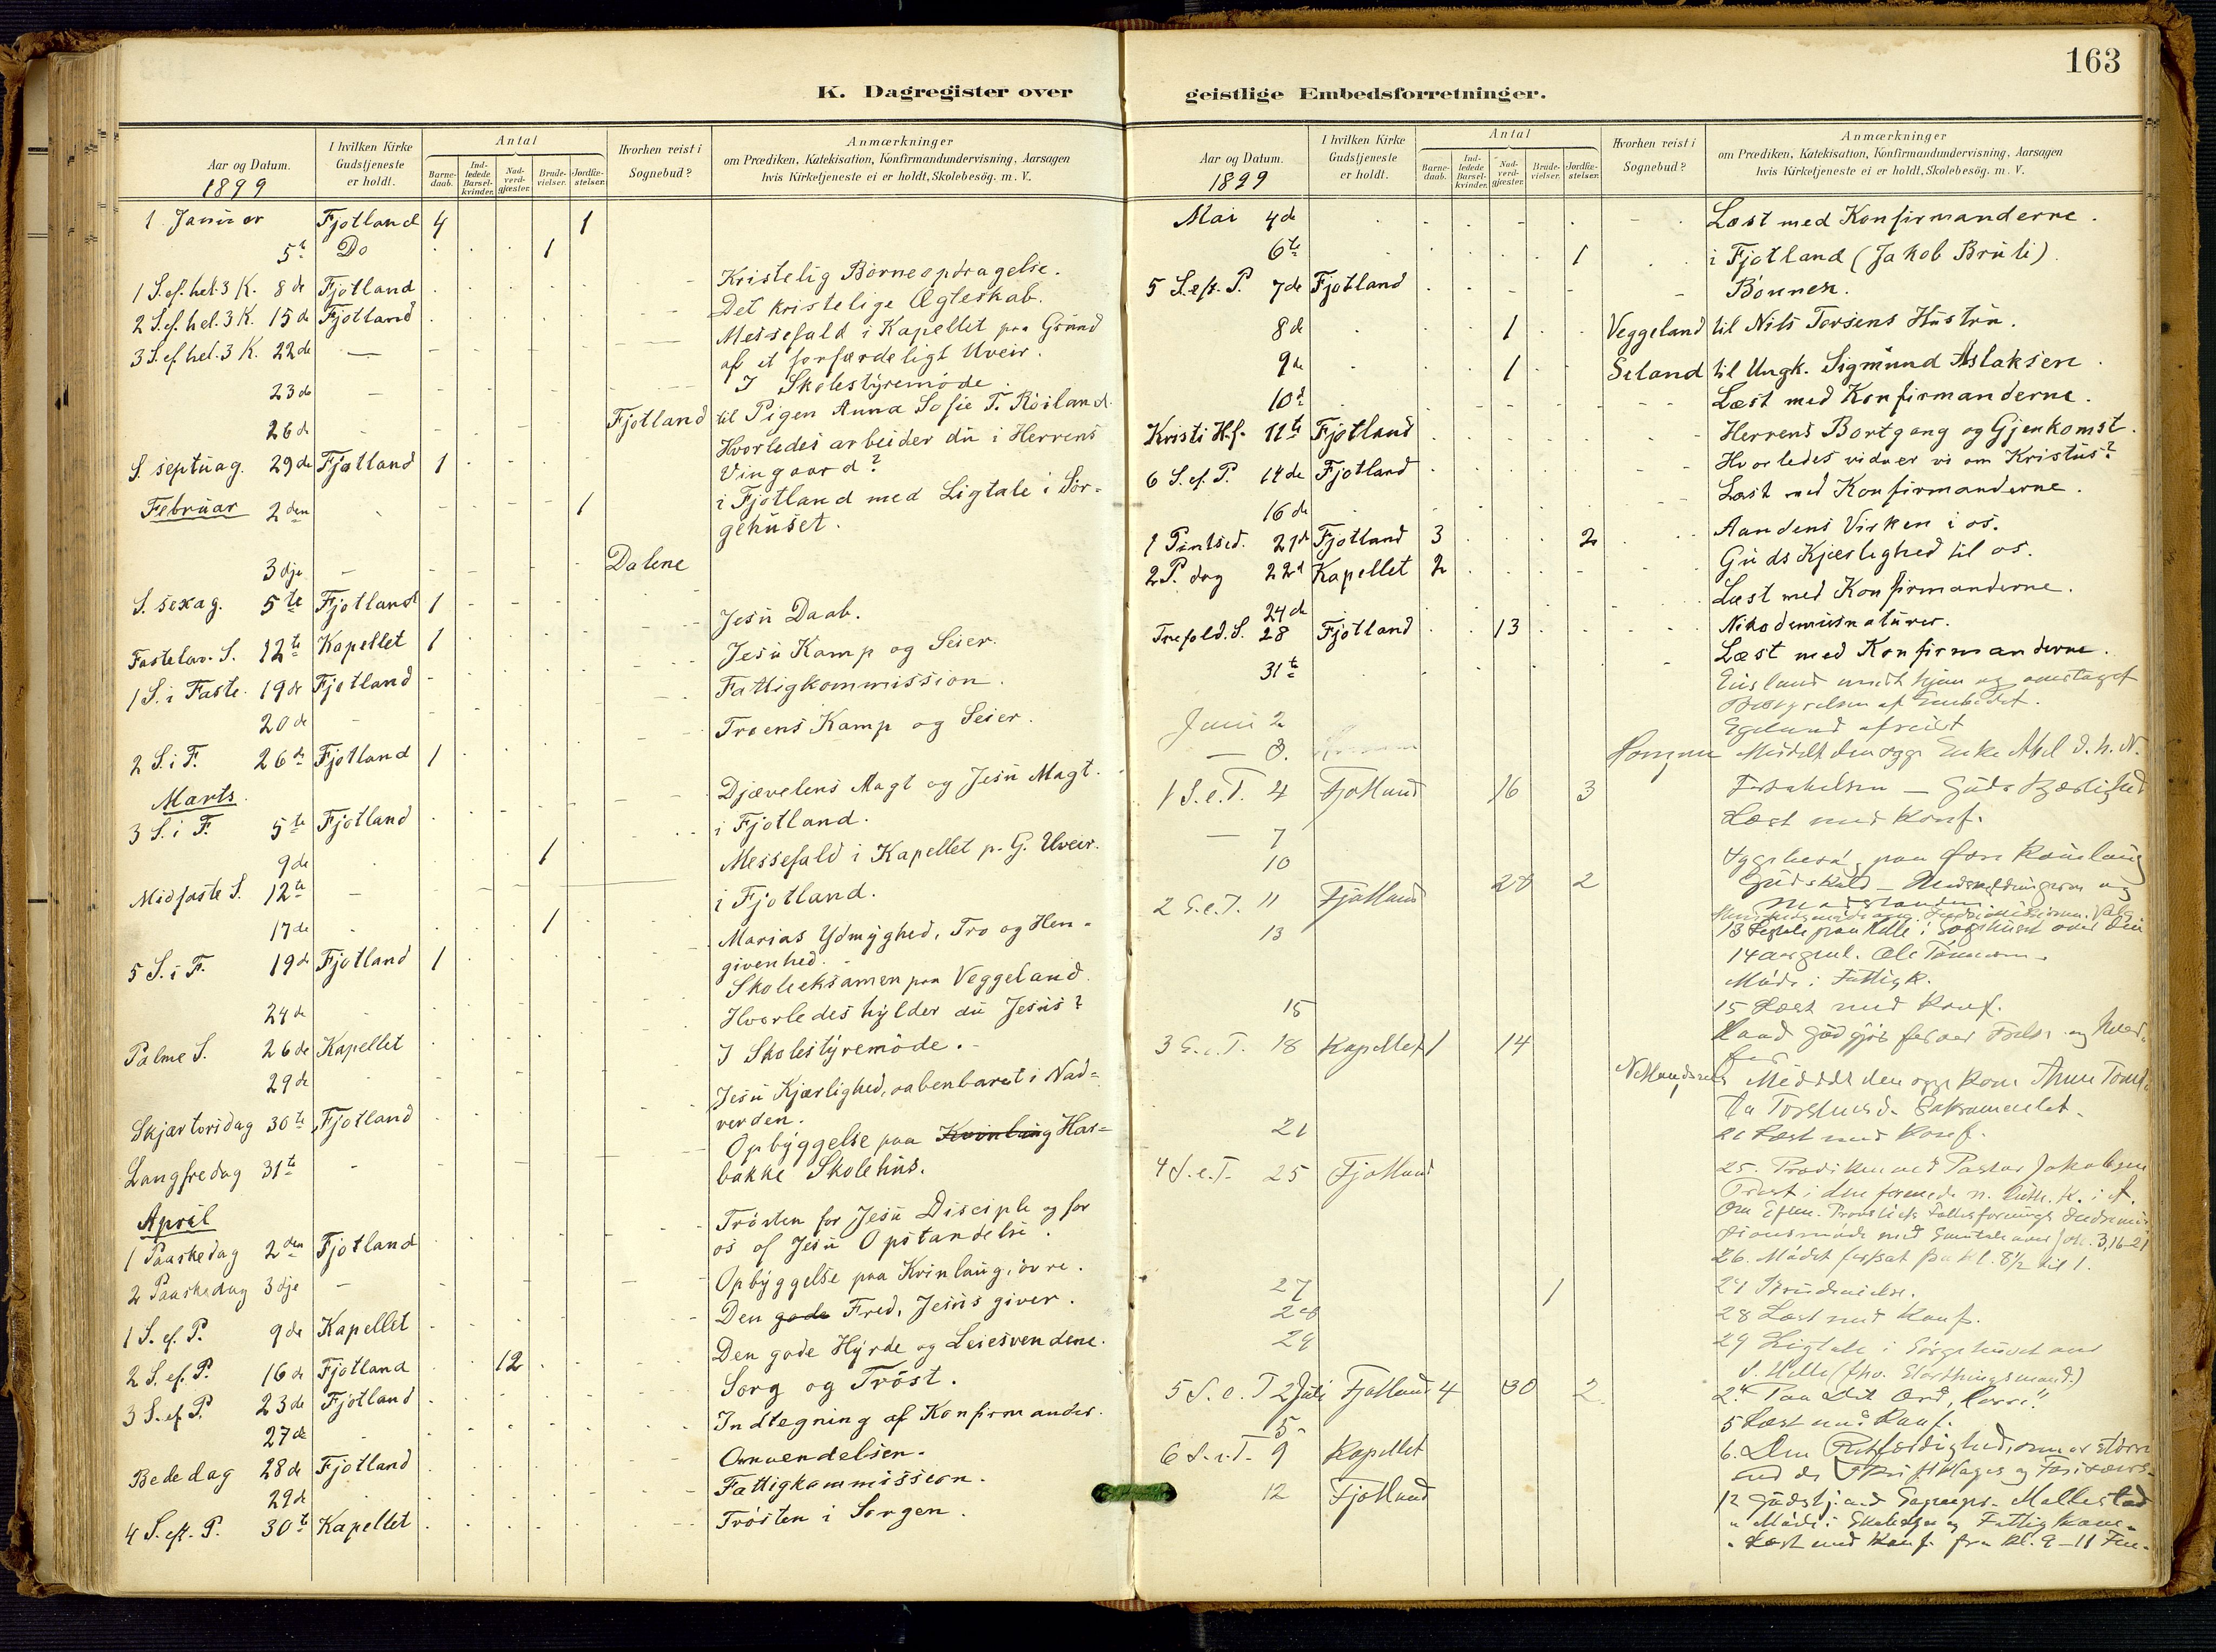 163
K. Dagregister over geistlige Embedsforretninger.
Aar og Datum.
1899
I hvilken Kirke Gudstjeneste er holdt.
Antal
Barnedaab.
Indledede Barselkvinder.
Nadverdgjæster.
Brudevielser.
Jordfæstelser.
Hvorhen reist i Sognebud?
Anmærkninger
om Prædiken, Katekisation, Konfirmandundervisning, Aarsagen
hvis Kirketjeneste ei er holdt, Skolebesøg. m. V.
1 Januar Fjotland 4 1
5t Do 1
1 S. ef. hel. 3 K. 8de Fjotland Kristelig Børneopdragelse.
2 S. ef. hel. 3 K. 15de Fjotland Det kristelige Ægteskab.
3 S. ef hel. 3 K. 22de — Messefald i Kapellet paa Grund
af et forfærdeligt Uveir.
23de — I Skolestyremøde.
26de Fjotland til Pigen Anna Sofie T. Røiland.
S septuag. 29de Fjotland 1 Hvorledes arbeider du i Herrens
Vingaard?
Februar 2den 1 i Fjotland med Ligtale i Sør-
gehuset.
3dje — Dalene
S. sexag. 5te Fjotland 1 Jesu Daab.
Fastelav. S. 12te Kapellet 1 Jesu Kamp og Seier.
1 S. i Faste. 19de Fjotland
20de Fattigkommission.
2 S. i F. 26de Fjotland 1 Troens Kamp og Seier.
Marts.
3 S. i F. 5te Fjotland Djævelens Magt og Jesu Magt.
9de 1 i Fjotland.
Midfaste S. 12te — Messefald i Kapellet p. G. Uveir.
17de 1 i Fjotland.
5 S. i F. 19de Fjotland 1 Marias Ydmyghed, Tro og Hen-
givenhed.
24de Skoleeksamen paa Veggeland.
Palme S. 26de Kapellet Hvorledes hylder du Jesus?
29de I Skolestyremøde.
Skjærtorsdag 30te Fjotland Jesu Kjærlighed, aabenbaret i Nad-
verden.
Langfredag 31te Opbyggelse paa Kvinlaug Has-
bakke Skolehus.
April
1 Paaskedag 2den Fjotland Trøsten for Jesu Disciple og for
os af Jesu Opstandelse.
2 Paaskedag 3dje — Opbyggelse paa Kvinlaug, øvre.
1 S. ef. P. 9de Kapellet Den gode Fred, Jesus giver.
2 S. ef. P. 16de Fjotland 12 Den gode Hyrde og Leiesvendene.
3 S. ef P. 23de Fjotland Sorg og Trøst.
27de Indtegning af Konfirmander.
Bededag 28de Fjotland Omvendelsen.
29de Fattigkommission.
4 S. eft. P. 30te Kapellet Trøsten i Sorgen.
Aar og Datum.
1899
I hvilken Kirke Gudstjeneste er holdt.
Antal
Barnedaab.
Indledede Barselkvinder.
Nadverdgjæster.
Brudevielser.
Jordfæstelser.
Hvorhen reist i Sognebud?
Anmærkninger
om Prædiken, Katekisation, Konfirmandundervisning, Aarsagen
hvis Kirketjeneste ei er holdt, Skolebesøg. m. V.
Mai 4de Læst med Konfirmanderne.
6te 1 i Fjotland (Jakob Bruli)
5 S. eft. P. 7de Fjotland Bønnen.
8de 1 Veggeland til Nils Torsens Hustru.
9de 1 Seland til Ungk. Sigmund Aslaksen.
10d Læst med Konfirmanderne.
Kristi Hf. 11te Fjotland Herrens Bortgang og Gjenkomst.
6 S. ef. P. 14de Fjotland Hvorledes vidner vi om Kristus?
16de Læst med Konfirmanderne.
1 Pintsed. 21d Fjotland 3 2 Aandens Virken i os.
2 P. dag 22d Kapellet 2 Guds Kjærlighed til os.
24de Læst med Konfirmanderne.
Trefold. S. 28 Fjotland 13 Nikodemusnaturer.
31te Læst med Konfirmanderne.
Juni 2 Bestyrelsen af Embedet.
Egeland afreist
1 S. e. T. 4 Fjotland 16 3 Guds Kjærlighed
— 7 Læst med Konf.
10
2 S. e. T. 11 Fjotland 28 2
13 14 aar gml. Ole
Møde i Fattigk.
15 15 Læst med Konf.
3 S. e. T. 18 Kapellet 1 14
Sakramentet.
21 21 Læst med Konf.
4 S. e. T. 25 Fjotland 25. Prædiken ved Pastor Jakobsen
Joh. 3,16-21
26. Mødet fortsat fra kl. 8½ til 1.
27 1 27 Brudevielse.
28 28 Læst med Konf.
29 29 Ligtale i Sørgehuset over
S. Helle (fhv. Storthingsmand)
5 S. e. T 2 Juli Fjotland 4 30 2 2. "Paa Dit Ord, Herre!"
5 5 Læst med Konf.
6 S. e. T. 9 Kapellet 6. Den Retfærdighed, som er større
12 Fjotland
Læst med Konf. fra kl. 9-11 Fm.